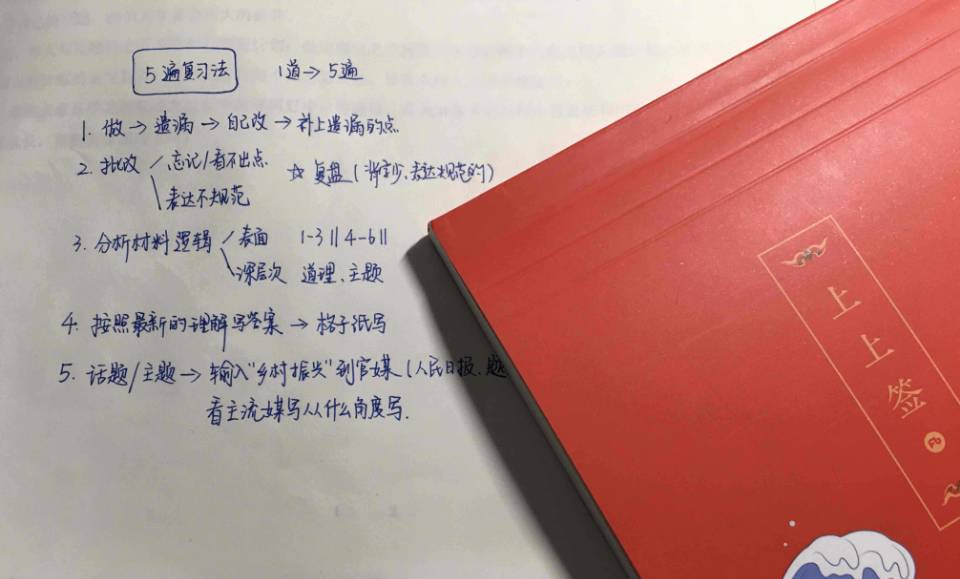 5遍复习法 1道→5遍
1. 做→遗漏→自己改→补上遗漏的点
2. 批改 忘记/看不出点 ☆ 复盘(少、表达规范的)
表达不规范
3. 分析材料逻辑 表面 1-3 || 4-6 ||
深层次 道理、主题
4. 按照最新的理解写答案→格子纸写
5. 话题/主题→输入"乡村振兴"到官媒(人民日报、
看主流媒写从什么角度写.
上上签